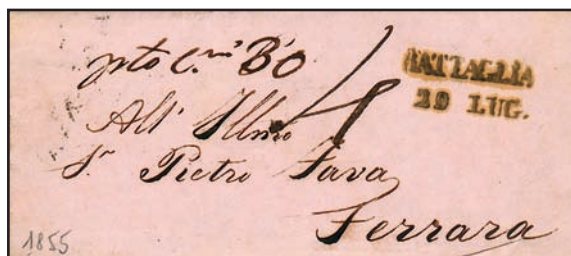 BATTAGLIA
29 LUG.
4
All' Illmo
Sr. Pietro Fava
Ferrara
1855